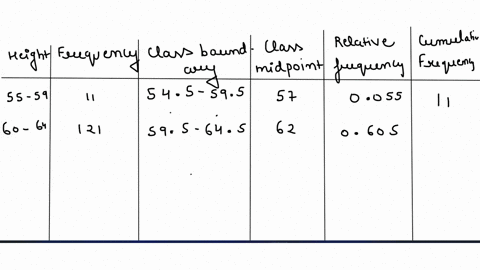 Height Frequency Class bound- ary Class midpoint Relative frequency Cumulativ Frequency
55-59 11 54.5-59.5 57 0.055 11
60-64 121 59.5-64.5 62 0.605